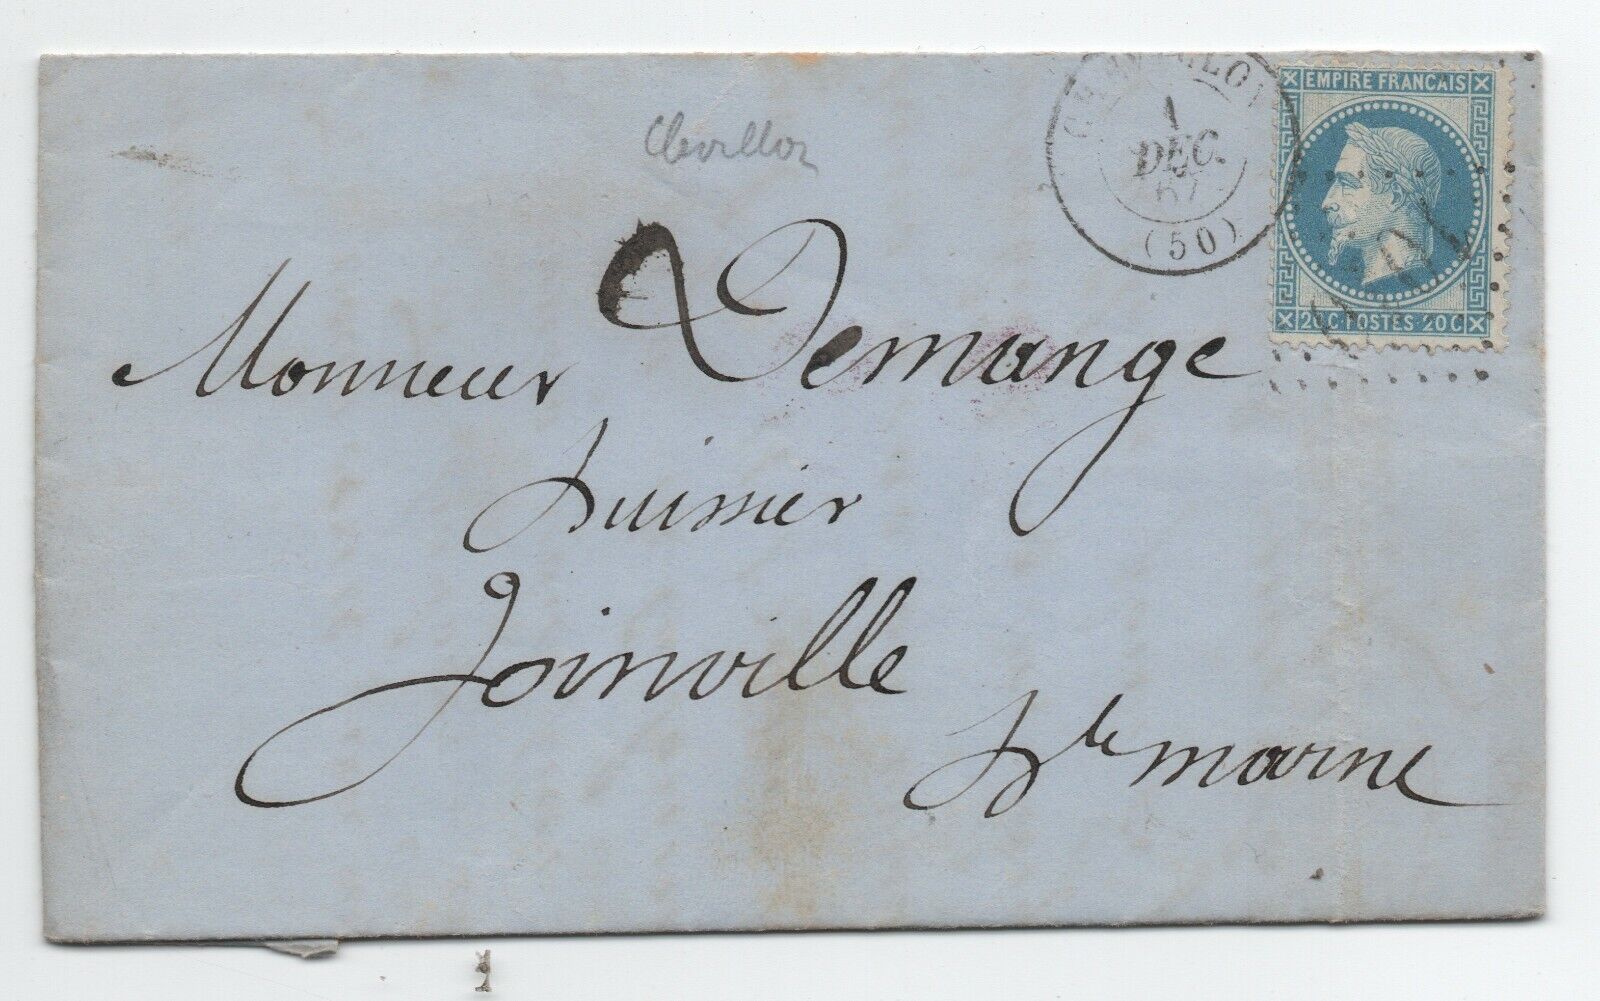 CHEVILLON
1
DEC.
67
(50)
EMPIRE FRANCAIS
20C POSTES 20C
Monsieur Demange
huissier
Joinville
Hte marne